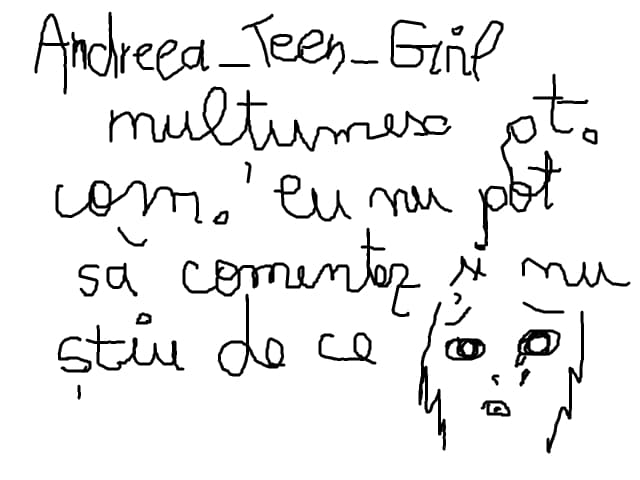 Andreea_Teen_Girl
multumesc pt.
com.' eu nu pot
să comentez și nu
știu de ce